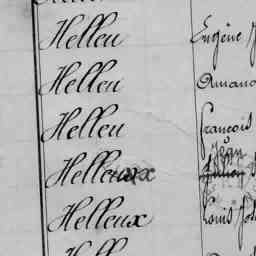 Helleu Eugène
Helleu Amand
Helleu François
Jean
Helleux
Helleux Louis